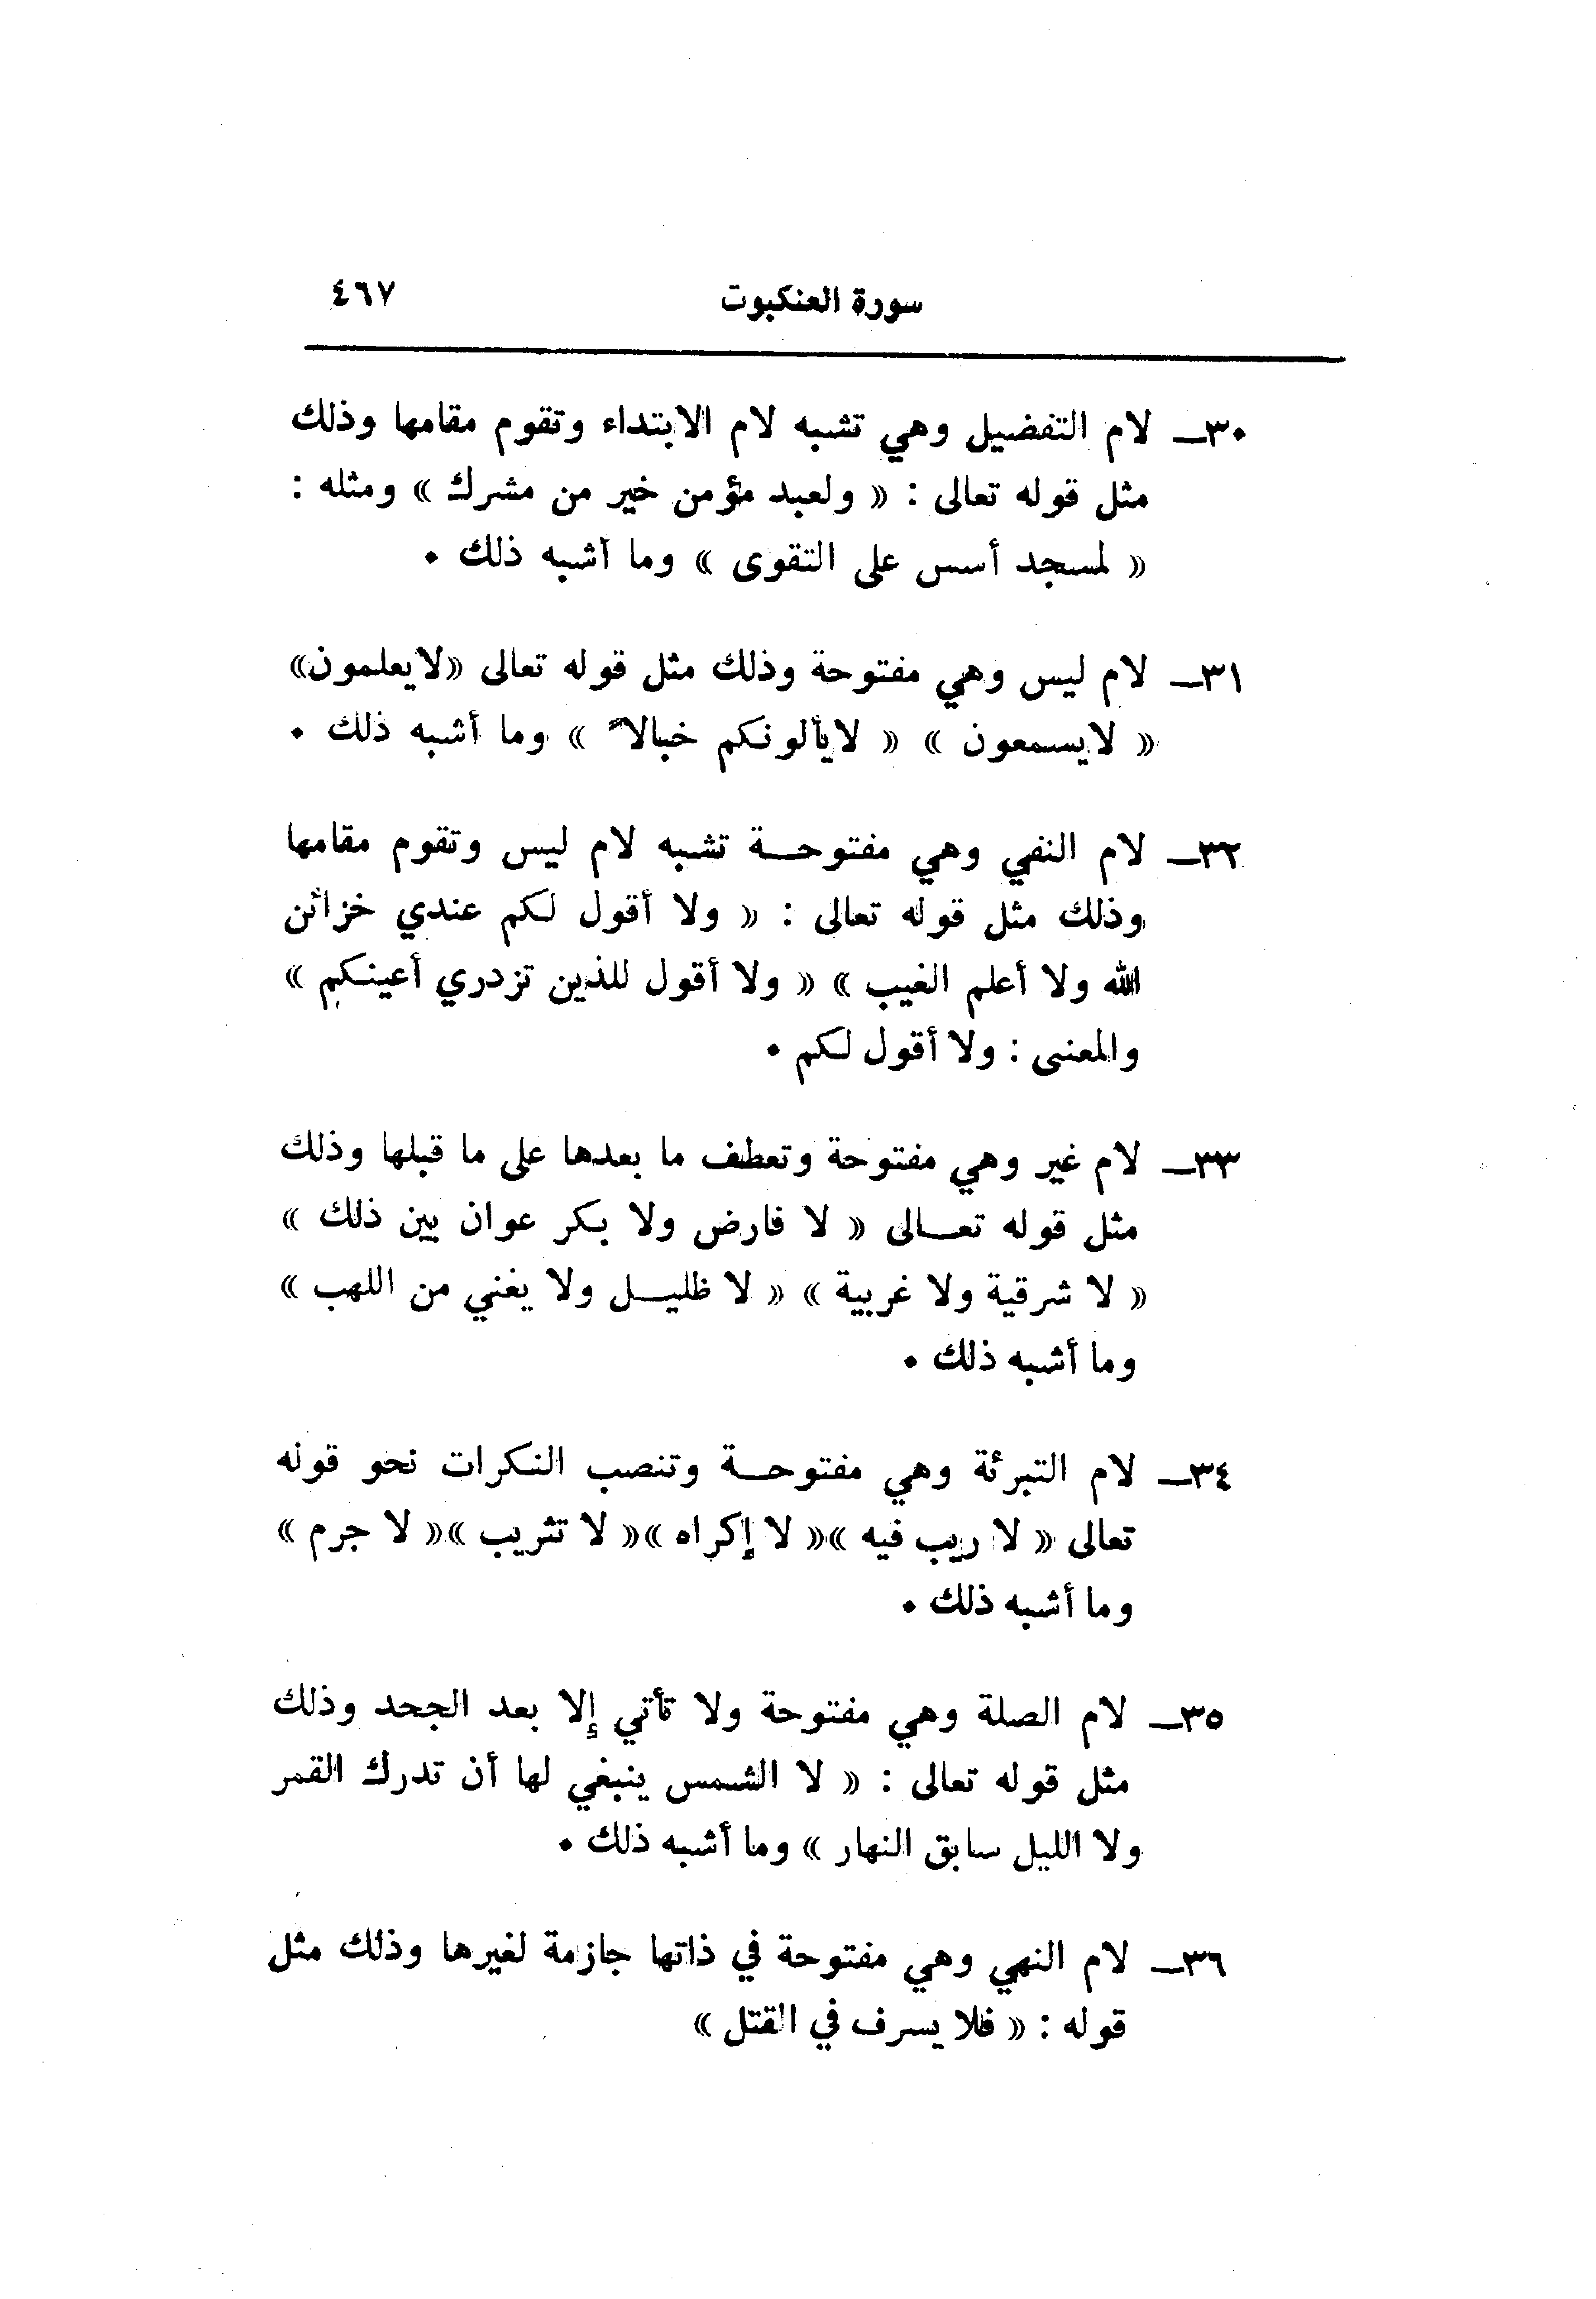 سورة العنكبوت ٤٦٧
٣٠ـ لام التفضيل وهي تشبه لام الابتداء وتقوم مقامها وذلك
مثل قوله تعالى : « ولعبد مؤمن خير من مشرك » ومثله :
« لمسجد أسس على التقوى » وما أشبه ذلك ٠
٣١ـ لام ليس وهي مفتوحة وذلك مثل قوله تعالى «لايعلمون»
« لايسمعون » « لايألونكم خبالاً » وما أشبه ذلك ٠
٣٢ـ لام النفي وهي مفتوحـــة تشبه لام ليس وتقوم مقامها
وذلك مثل قوله تعالى : « ولا أقول لكم عندي خزائن
الله ولا أعلم الغيب » « ولا أقول للذين تزدري أعينكم »
والمعنى : ولا أقول لكم ٠
٣٣ـ لام غير وهي مفتوحة وتعطف ما بعدها على ما قبلها وذلك
مثل قوله تعـــالى « لا فارض ولا بكر عوان بين ذلك »
« لا شرقية ولا غربية » « لا ظليـــل ولا يغني من اللهب »
وما أشبه ذلك ٠
٣٤ـ لام التبرئة وهي مفتوحـــة وتنصب النكرات نحو قوله
تعالى « لا ريب فيه »« لا إكراه »« لا تثريب »« لا جرم »
وما أشبه ذلك ٠
٣٥ـ لام الصلة وهي مفتوحة ولا تأتي إلا بعد الجحد وذلك
مثل قوله تعالى : « لا الشمس ينبغي لها أن تدرك القمر
ولا الليل سابق النهار » وما أشبه ذلك ٠
٣٦ـ لام النهي وهي مفتوحة في ذاتها جازمة لغيرها وذلك مثل
قوله : « فلا يسرف في القتل »